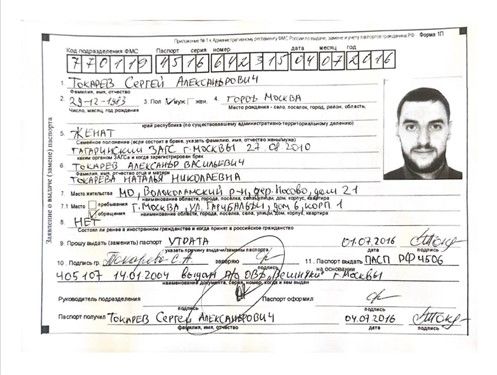 Приложение № 1 к Административному регламенту ФМС России по выдаче, замене и учету паспортов гражданина РФ Форма 1П
Код подразделения ФМС Паспорт серия номер дата
770119 4516 642315 04 07 2016
1. ТОКАРЕВ СЕРГЕЙ АЛЕКСАНДРОВИЧ
Фамилия, имя, отчество
2. 3. Пол муж жен. 4. ГОРОД МОСКВА
Число, месяц, год рождения Место рождения - село, поселок, город, район, область,
край республика (по существовавшему административно территориальному делению)
5. ЖЕНАТ
Семейное положение (если состоит в браке, указать фамилию, имя, отчество жены/мужа)
ГАГАРИНСКИЙ ЗАГС Г.МОСКВЫ 27 08 2010
каким органом ЗАГСа и когда зарегистрирован брак
6. ТОКАРЕВ АЛЕКСАНДР ВАСИЛЬЕВИЧ
Фамилия, имя, отчество отца и матери
ТОКАРЕВА НАТАЛЬЯ НИКОЛАЕВНА
7. Место жительства МО, ВОЛОКОЛАМСКИЙ Р-Н, ДЕР. НОСОВО, ДОМ 21
наименование области, города, поселка, села, улицы, дом, корпус, квартира
7.1 Место пребывания обращения Г.МОСКВА, УЛ. ГАРИБАЛЬДИ, ДОМ 6, КОРП 1
наименование области, города, поселка, села, улица, дом, корпус, квартира
8. НЕТ
Состояли ли ранее в иностранном гражданстве и когда принят в российское гражданство
9. Прошу выдать (заменить) паспорт УТРАТА 01.07.2016
указать причину выдачи/замены паспорта дата подпись
10. Подпись гр. Токарева С.А. заверяю 11. Паспорт выдать (заменить) на основании ПАСП РФ 4506
405107 14.01.2004 выдан ОВД г.Москвы
наименования документов, серия, номер, когда и кем выдан
Руководитель подразделения Паспорт оформил
подпись подпись
Паспорт получил ТОКАРЕВ СЕРГЕЙ АЛЕКСАНДРОВИЧ 04.07.2016
фамилия, имя, отчество дата подпись
Заявление о выдаче (замене) паспорта